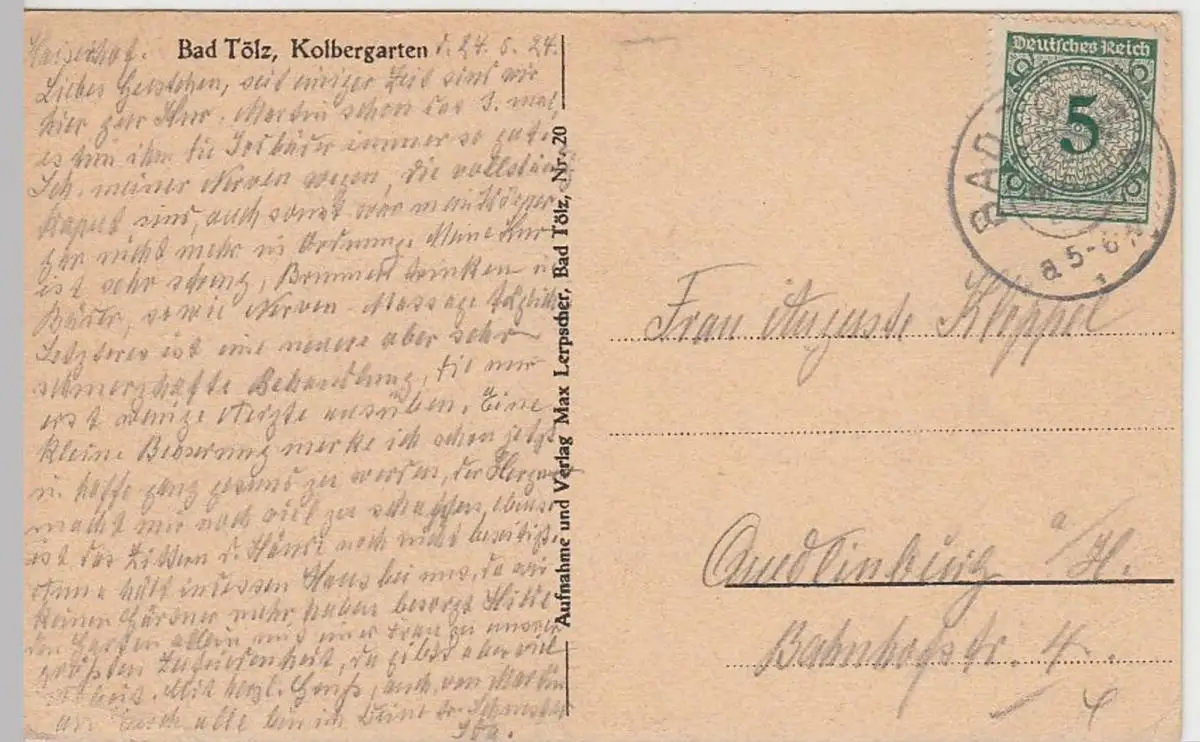 Kaiserhof. Bad Tölz, Kolbergarten d. 24.5.24.
Liebes Gustchen, seit einiger Zeit sind wir
hier zur Kur. Martin schon das 3. mal,
es tun ihm die Jodbäder immer so gut.
Ich, meiner Nerven wegen, die vollständig
kaput sind, auch sonst war mein Körper
gar nicht mehr in Ordnung. Meine Kur
ist sehr streng, Brunnen trinken u.
Bäder, sowie Nerven-Massage täglich
Letzteres ist eine neuere aber sehr
schmerzhafte Behandlung, die nur
erst wenige Aerzte ausüben. Eine
kleine Besserung merke ich schon jetzt
u. hoffe ganz gesund zu werden, der Herzner
macht mir noch viel zu schaffen, ebenso
ist das Zittern d. Hände noch nicht beseitigt.
Anna hält indessen Haus bei uns, da wir
keinen Gärtner mehr haben besorgt Hilde
den Garten allein mit einer Frau zu unserer
größten Zufriedenheit, da gibts aber viel
Arbeit. Mit herzl. Gruß, auch von Martin
an Euch alle bin ich Deine tr. Schwester
Ida.
Aufnahme und Verlag Max Lerpscher, Bad Tölz, Nr. 20
Deutsches Reich
5
BAD
a 5-6
Frau Auguste Kloppel
Quedlinburg a/H.
Bahnhofstr. 4.